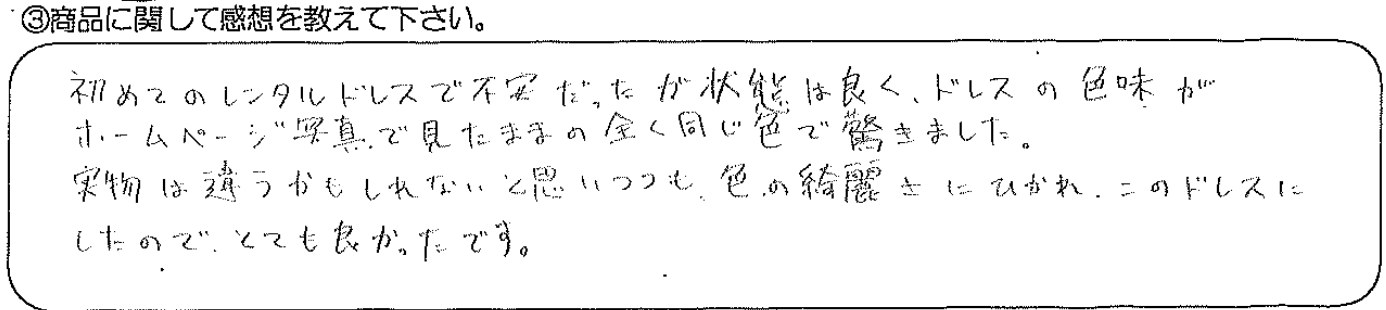 ③商品に関して感想を教えて下さい。
初めてのレンタルドレスで不安だったが状態は良く、ドレスの色味が
ホームページ写真で見たままの全く同じ色で驚きました。
実物は違うかもしれないと思いつつも、色の綺麗さにひかれ、このドレスに
したので、とても良かったです。